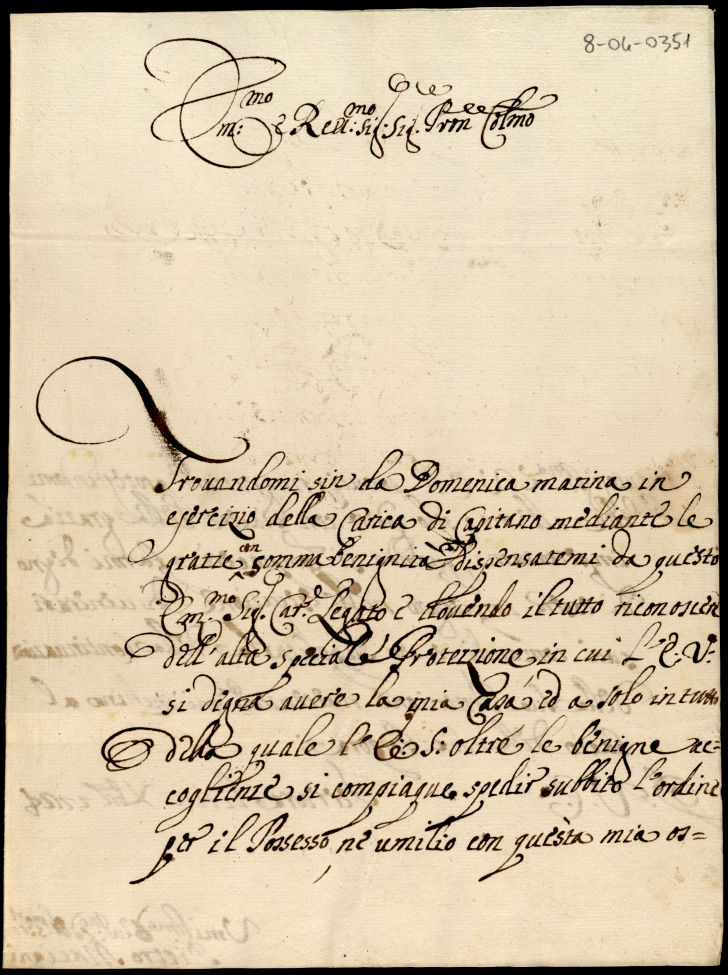 8-04-0351
Em:mo e Reu:mo Sig: Sig: Prone Colmo
Trouandomi sin da Domenica matina in
esercizio della Carica di Capitano mediante le
gratie con somma benignità dispensatemi da questo
Em:mo Sig: Car:e Legato e douendo il tutto riconoscere
dell'alta speciale Protezzione in cui l'E: V:
si degna auere la mia Casa, ed a solo in tutto
della quale l'E: S: oltre le benigne ac=
coglienze si compiaque spedir subbito l'ordine
per il Possesso, ne umilio con questa mia os=